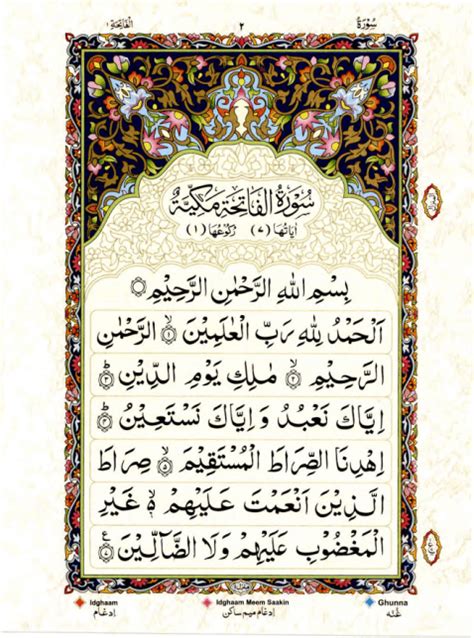 سُوْرَةُ ٢ اَلْفَاتِحَة ١
سُوْرَةُ الْفَاتِحَةِ مَكِّيَّةٌ
اٰيَاتُهَا (٧) رُكُوْعُهَا (١)
بِسْمِ اللّٰهِ الرَّحْمٰنِ الرَّحِيْمِ
اَلْحَمْدُ لِلّٰهِ رَبِّ الْعٰلَمِيْنَ ١ الرَّحْمٰنِ
الرَّحِيْمِ ٢ مٰلِكِ يَوْمِ الدِّيْنِ ٣
اِيَّاكَ نَعْبُدُ وَ اِيَّاكَ نَسْتَعِيْنُ ٤
اِهْدِنَا الصِّرَاطَ الْمُسْتَقِيْمَ ٥ صِرَاطَ
الَّذِيْنَ اَنْعَمْتَ عَلَيْهِمْ ۙ۬ غَيْرِ
الْمَغْضُوْبِ عَلَيْهِمْ وَلَا الضَّآلِّيْنَ ٧ ع
Idghaam Idghaam Meem Saakin Ghunna
اِدغَام اِدغَام مِيم سَاكن غُنّه